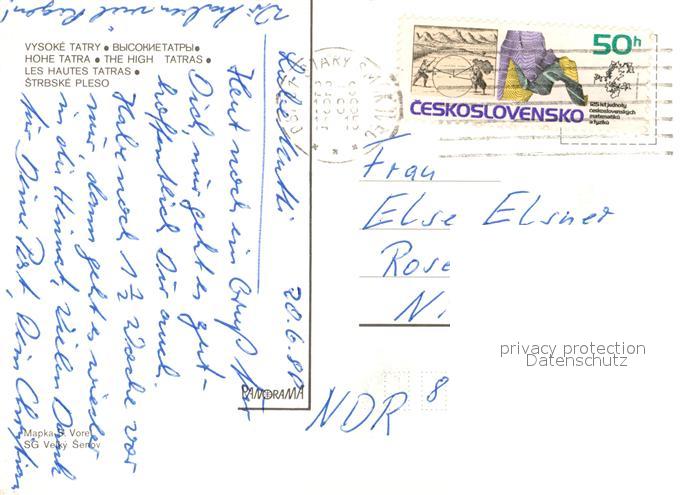 Wir haben viel Regen!
VYSOKÉ TATRY ● ВЫСОКИЕТАТРЫ ●
HOHE TATRA ● THE HIGH TATRAS ●
LES HAUTES TATRAS ●
ŠTRBSKÉ PLESO
20.6.88
Liebe Mutti
Heut noch ein Gruß für
Dich, mir geht es gut -
hoffentlich Dir auch.
Habe noch 1½ Woche vor
mir, dann geht es wieder
in die Heimat, Vielen Dank
für Deine Post, Dein Christian
Mapka S. Vore
SG Velký Šenov
PANORAMA
50h
ČESKOSLOVENSKO
125 let jednoty
československých
matematiků
a fyziků
Frau
Else Elsner
Rose
N
privacy protection
Datenschutz
NDR 8